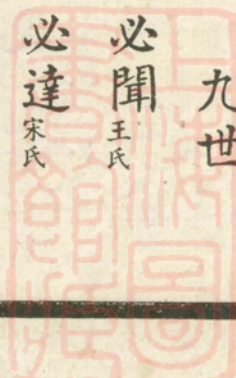 九世
必聞 王氏
必達 宋氏